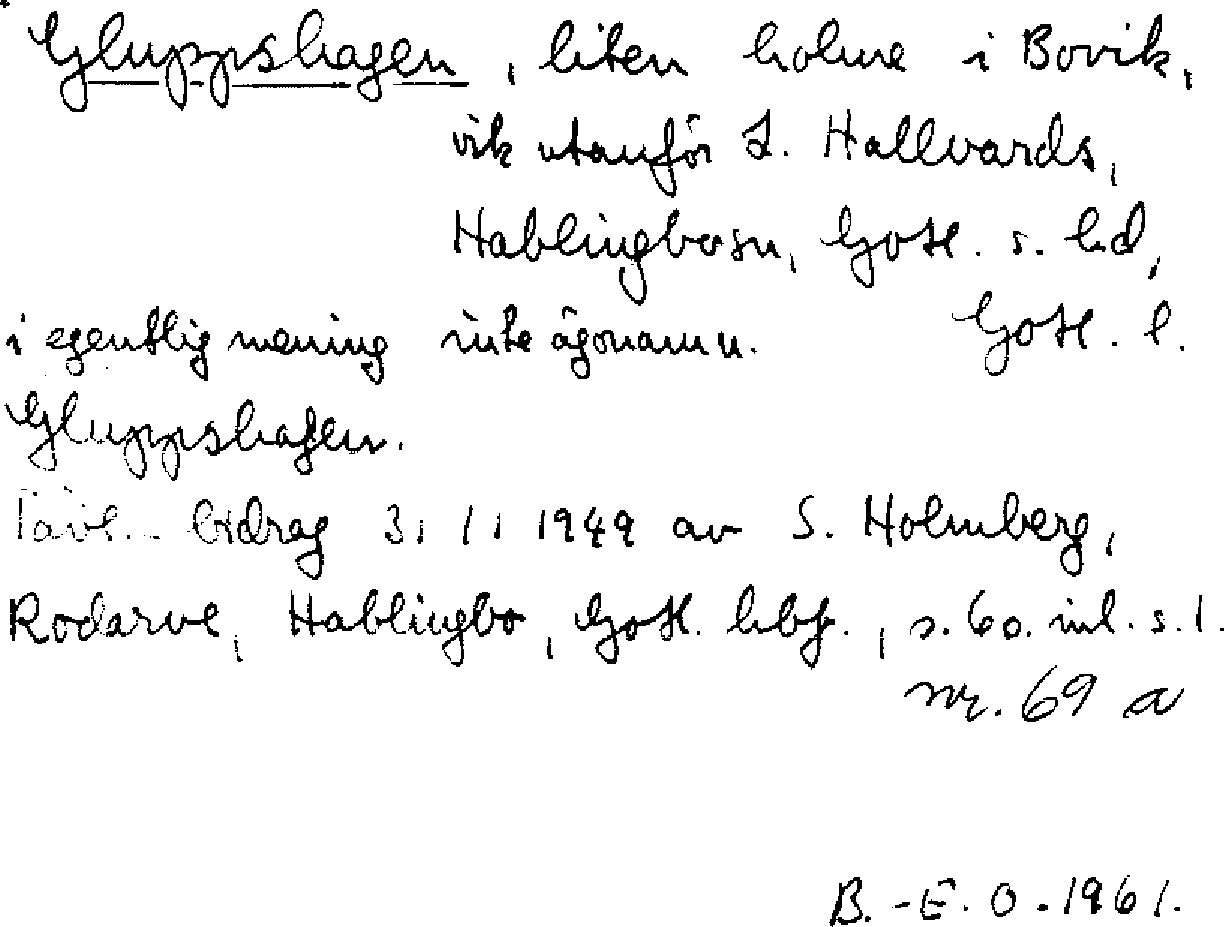 Gluppshagen, liten holme i Bovik,
vik utanför L. Hallvards,
Hablingbosn, Gotl. s. hd,
i egentlig mening inte ägonamn. Gotl. l.
Gluppshagen.
Tävl. bidrag 31/1 1949 av S. Holmberg,
Rodarve, Hablingbo, Gotl. hbf., s. 60. inl. s. 1.
nr. 69 a
B.-E. O. 1961.